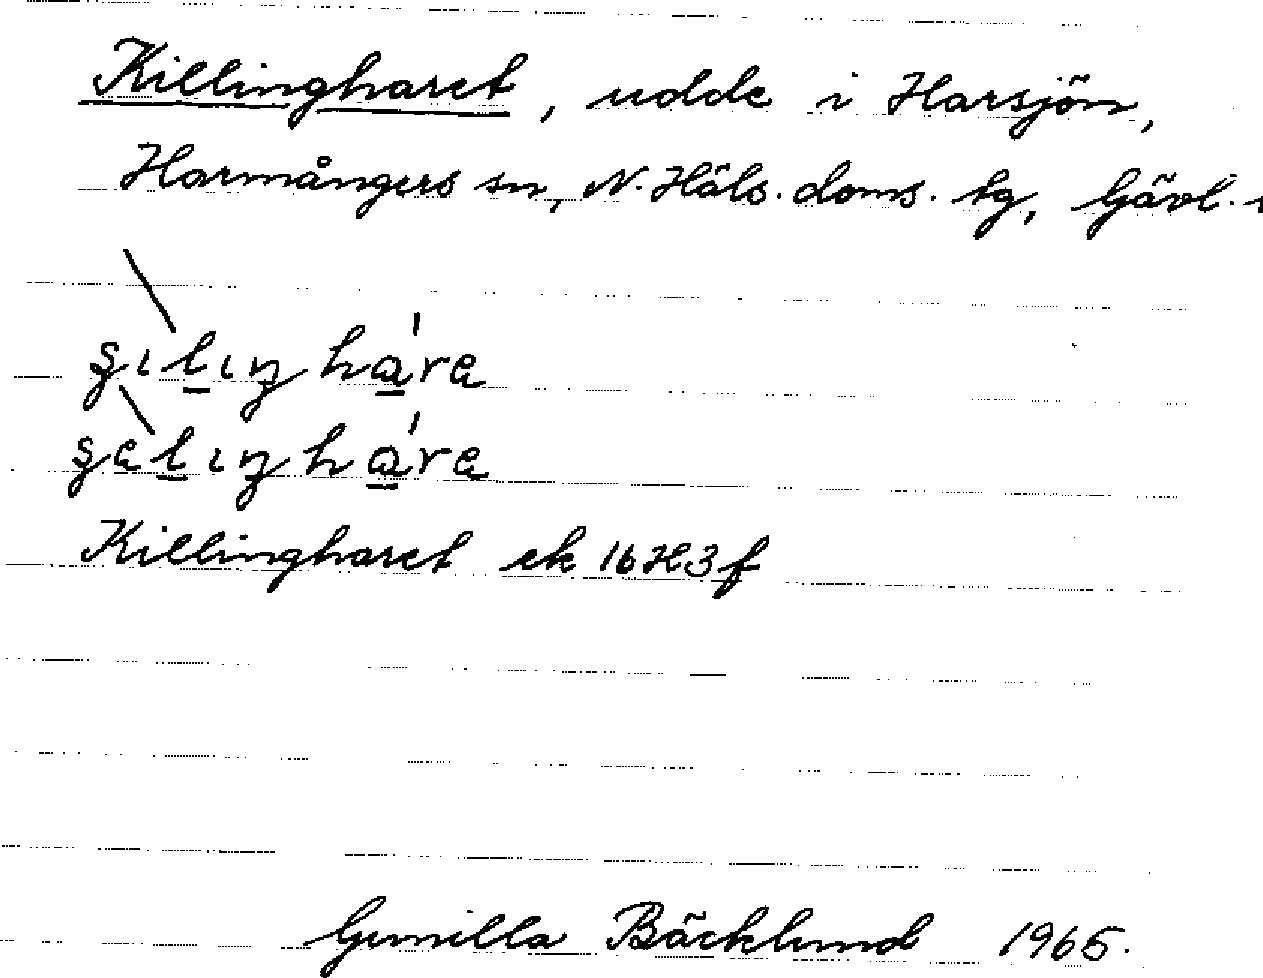 Killingharet, udde i Harsjön,
Harmångers sn, N. Häls. doms. tg, Gävl.
Killingharet ek 16H3f
Gunilla Bäcklund 1965.